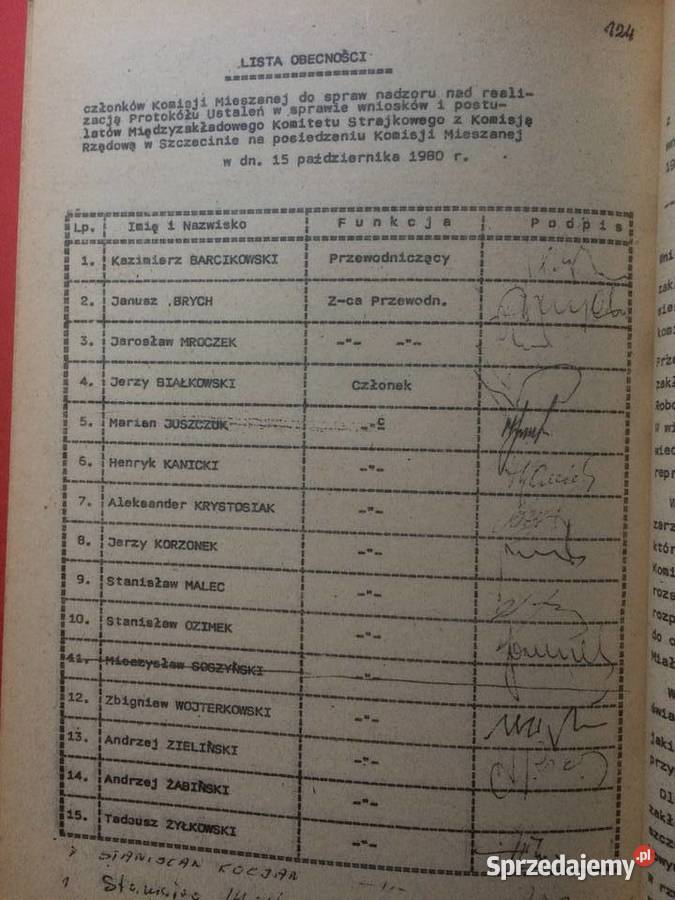 124
LISTA OBECNOŚCI
członków Komisji Mieszanej do spraw nadzoru nad reali-
zacją Protokółu Ustaleń w sprawie wniosków i postu-
latów Międzyzakładowego Komitetu Strajkowego z Komisją
Rządową w Szczecinie na posiedzeniu Komisji Mieszanej
w dn. 15 października 1980 r.
Lp. Imię i Nazwisko Funkcja Podpis
1. Kazimierz BARCIKOWSKI Przewodniczący
2. Janusz BRYCH Z-ca Przewodn.
3. Jarosław MROCZEK -"- -"-
4. Jerzy BIAŁKOWSKI Członek
5. Marian JUSZCZUK -"-
6. Henryk KANICKI -"-
7. Aleksander KRYSTOSIAK -"-
8. Jerzy KORZONEK -"-
9. Stanisław MALEC -"-
10. Stanisław OZIMEK -"-
11. Mieczysław SOSZYŃSKI -"-
12. Zbigniew WOJTERKOWSKI -"-
13. Andrzej ZIELIŃSKI -"-
14. Andrzej ŻABIŃSKI -"-
15. Tadeusz ŻYŁKOWSKI -"-
STANISŁAW KOCJAN -"-
Sprzedajemy.pl